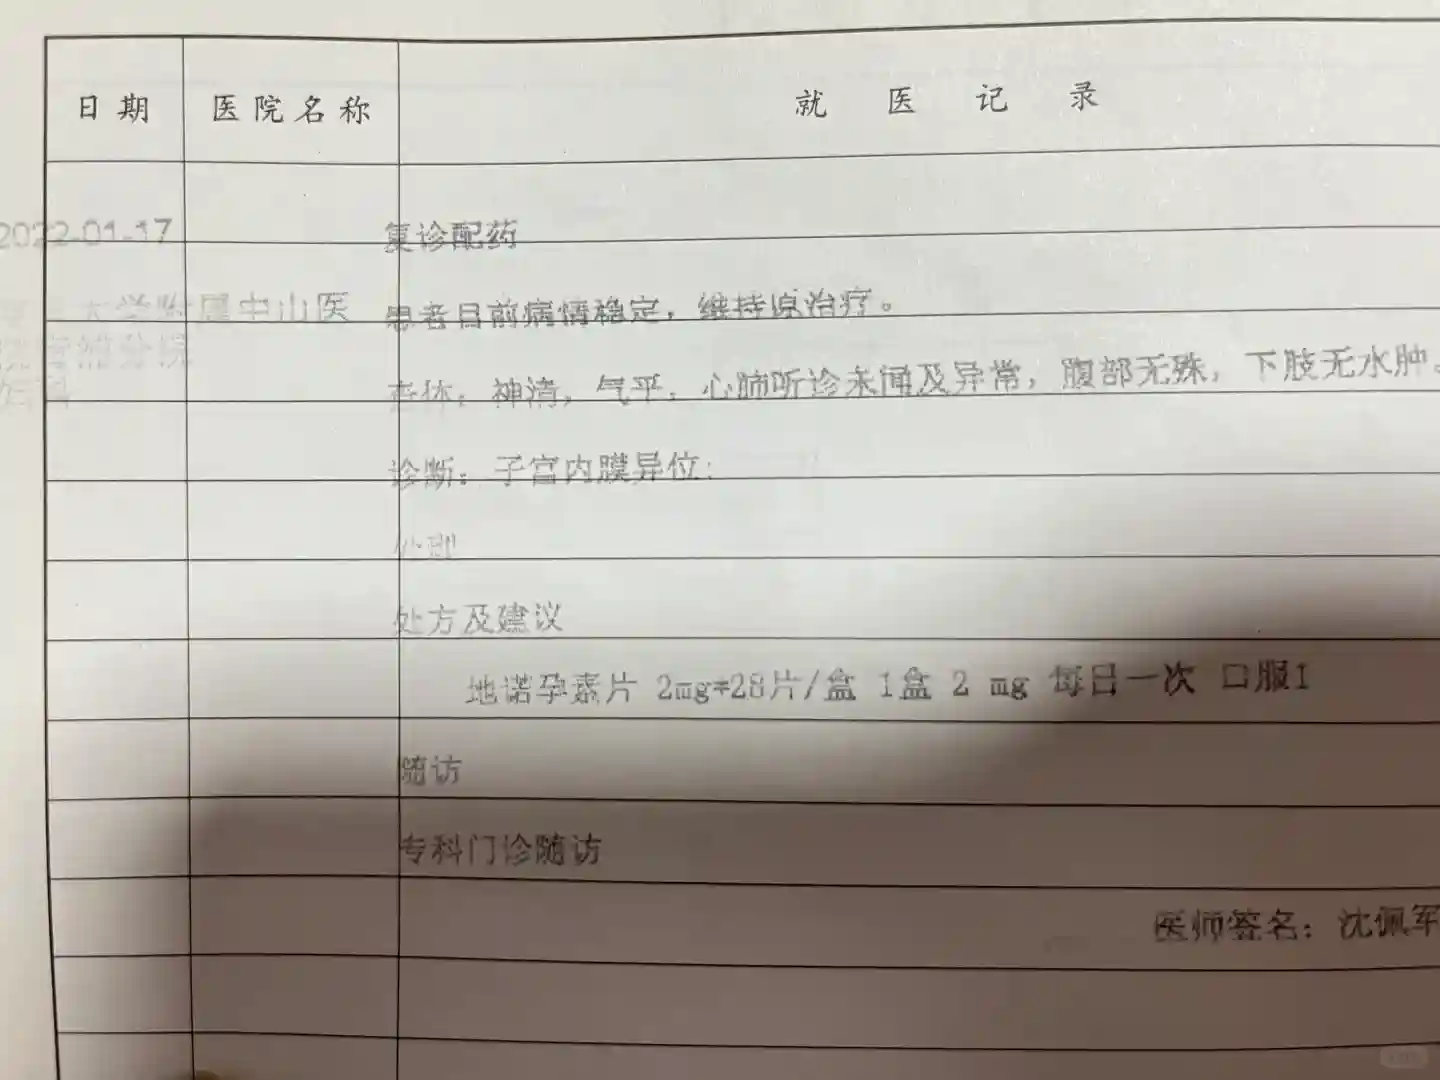 日期 医院名称 就医记录
2022-01-17 复诊配药
大学附属中山医 患者目前病情稳定，维持原治疗。
分院
查体：神清，气平，心肺听诊未闻及异常，腹部无殊，下肢无水肿。
诊断：子宫内膜异位:
处理
处方及建议
地诺孕素片 2mg*28片/盒 1盒 2 mg 每日一次 口服1
随访
专科门诊随访
医师签名：沈佩军